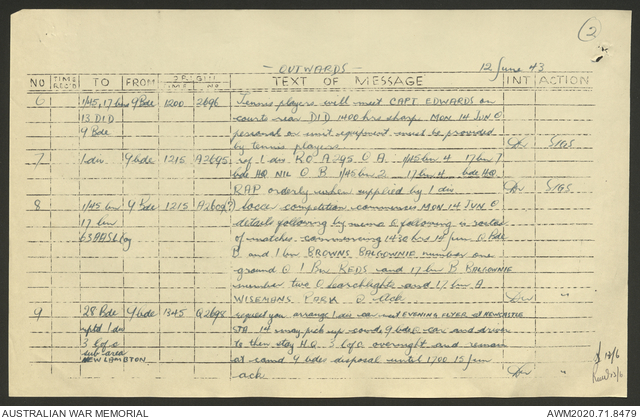 2
- OUTWARDS -
12 June 43
NO TIME REC'D TO FROM ORIGIN TIME NO TEXT OF MESSAGE INT ACTION
6 1/45, 17 bns 9 Bde 1200 3696 Tennis players will meet CAPT EDWARDS on
13 DID courts near DID 1400 hrs sharp MON 14 JUN
9 Bde personal or unit equipment must be provided
by tennis players SIGS
7 1 div 9 bde 1215 A2695 ref 1 div RO A 245 1/45 bn 4 17 bn 7
bde HQ NIL B 1/45 bn 2 17 bn 4 bde HQ
RAP orderly when supplied by 1 div SIGS
8 1/45 bn 9 Bde 1215 local competition commences MON 14 JUN
17 bn details following by memo following is roster
of matches commencing 1430 hrs 14 Jun Bde
B and 1 bn BROWNS BALGOWNIE number one
ground 1 Bn REDS and 17 bn B BALGOWNIE
number two searchlights and 17 bn A
WISEMANS PARK ack
9 28 Bde 9 bde 1345 Q2698 request you arrange 1 div car meet EVENING FLYER at NEWCASTLE
rptd 1 div STA 14 may pick up 9 bde car and driver
3 L of C to then stay HQ 3 L of C overnight and remain
sub area at 9 bdes disposal until 1700 15 Jun
NEW LAMBTON ack
AUSTRALIAN WAR MEMORIAL
AWM2020.71.8479